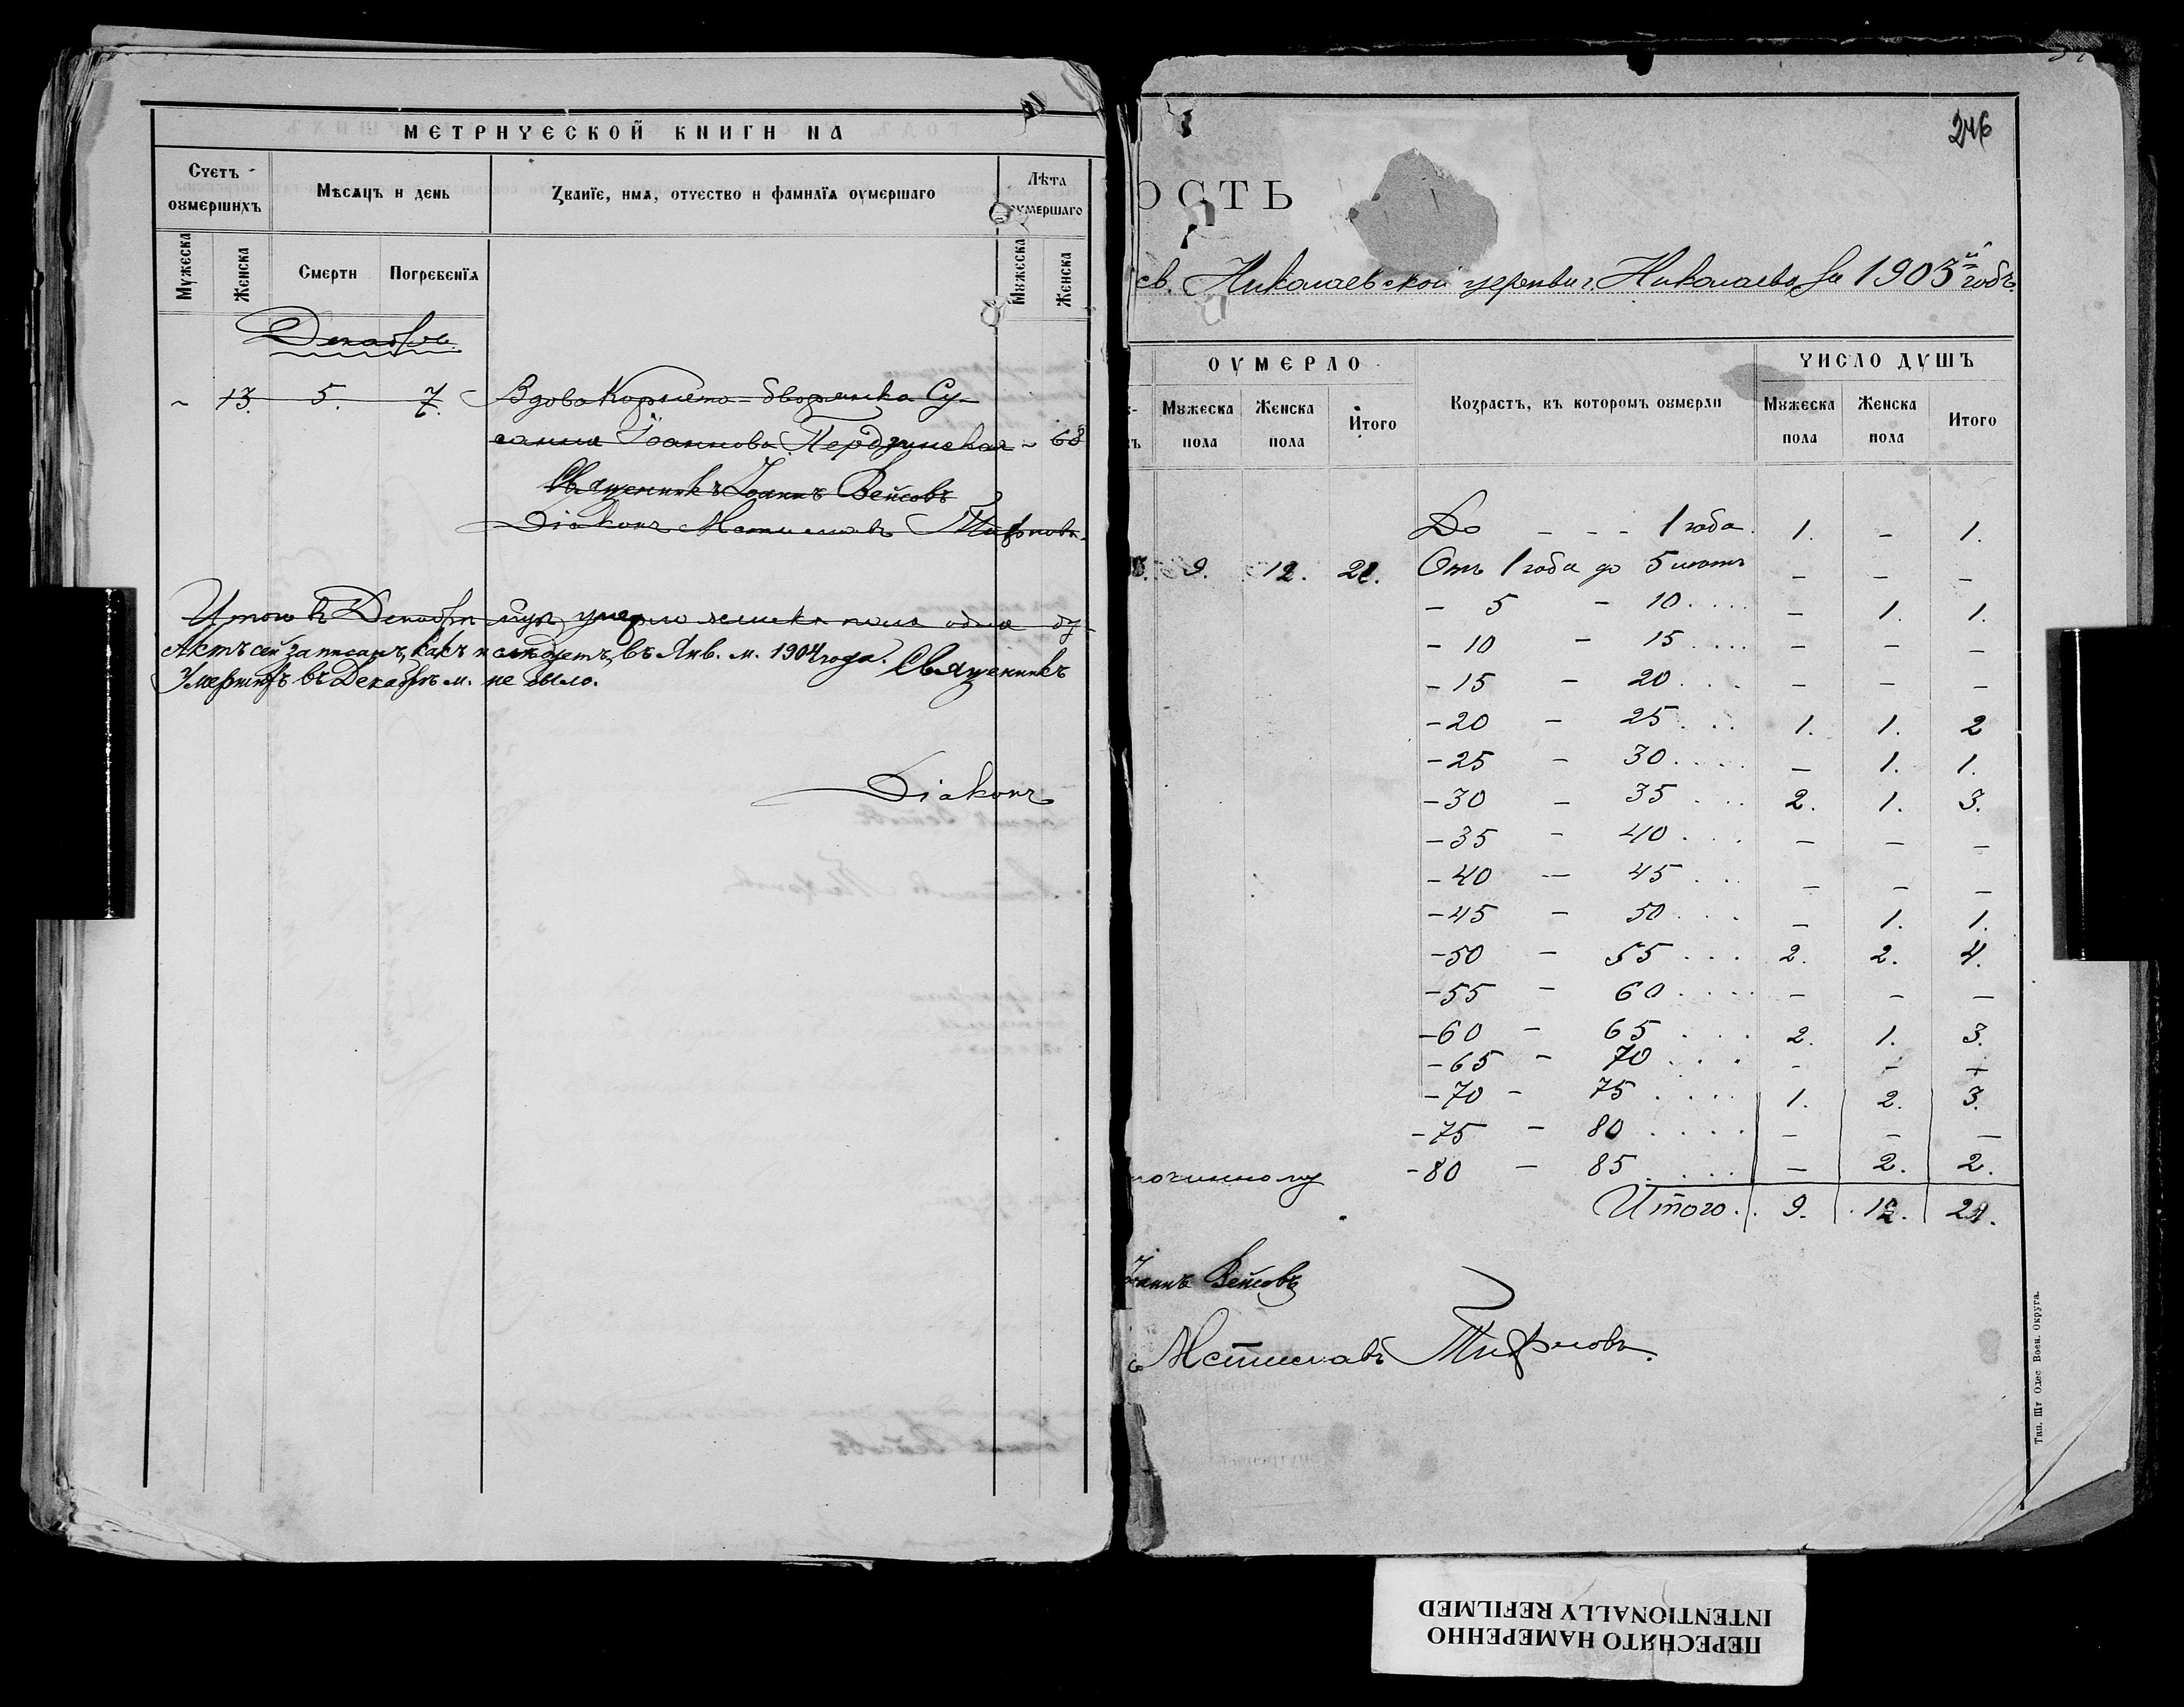 МЕТРИЧЕСКОЙ КНИГИ НА
Счетъ оумершихъ
Мѣсяцъ и день
Званїе, имя, отчество и фамилїя оумершаго
Лѣта оумершаго
Мужеска
Женска
Смерти
Погребенїя
Мужеска
Женска
Декабрь.
- 13. 5. 7. Вдова Корнета - дворянка Су-
санна Іоаннова - 68
Священникъ Іоаннъ Вейсовъ
Діаконъ Мстиславъ
Итого въ Декабрѣ умерло женска пола одна ду-
Актъ сей записанъ, какъ и слѣдуетъ, въ Янв. м. 1904 года. Священникъ
Умершихъ въ Декабрѣ м. не было.
Діаконъ
246
ОСТЬ
св. Николаевской церкви г. Николаева, за 1903й годъ.
ОУМЕРЛО
Мужеска пола
Женска пола
Итого
Возрастъ, въ которомъ оумерли
ЧИСЛО ДУШЪ
Мужеска пола
Женска пола
Итого
До - - - 1 года. 1. - 1.
9. 12. 21. Отъ 1 года до 5 лѣтъ - - -
- 5 - 10 .... - 1. 1.
- 10 - 15 .... - - -
- 15 - 20 ... - - -
- 20 - 25 ... 1. 1. 2
- 25 - 30 .... - 1. 1.
- 30 - 35 ... 2. 1. 3.
- 35 - 40 ... - - -
- 40 - 45 ... - - -
- 45 - 50 ... - 1. 1.
- 50 - 55 ... 2. 2. 4.
- 55 - 60 .... - - -
- 60 - 65 ... 2. 1. 3.
- 65 - 70 ... - - -
- 70 - 75 .... 1. 2. 3.
- 75 - 80 .... - - -
- 80 - 85 .... - 2. 2.
Итого .. 9. 12. 21.
починному
Іоаннъ Вейсовъ
Мстиславъ
Тип. Шт Одес Воен. Округа.
ПЕРЕСНЯТО НАМЕРЕННО
INTENTIONALLY REFILMED